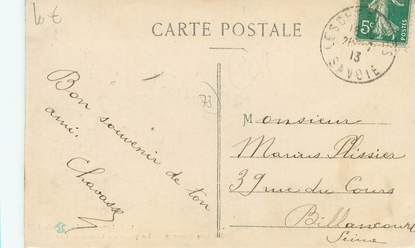 10 €
CARTE POSTALE
5c
SAVOIE
13
73
Bon souvenir de ton
ami.
Chavasse
Monsieur
Marius Plissier
39 rue du Cours
Billancourt
Seine